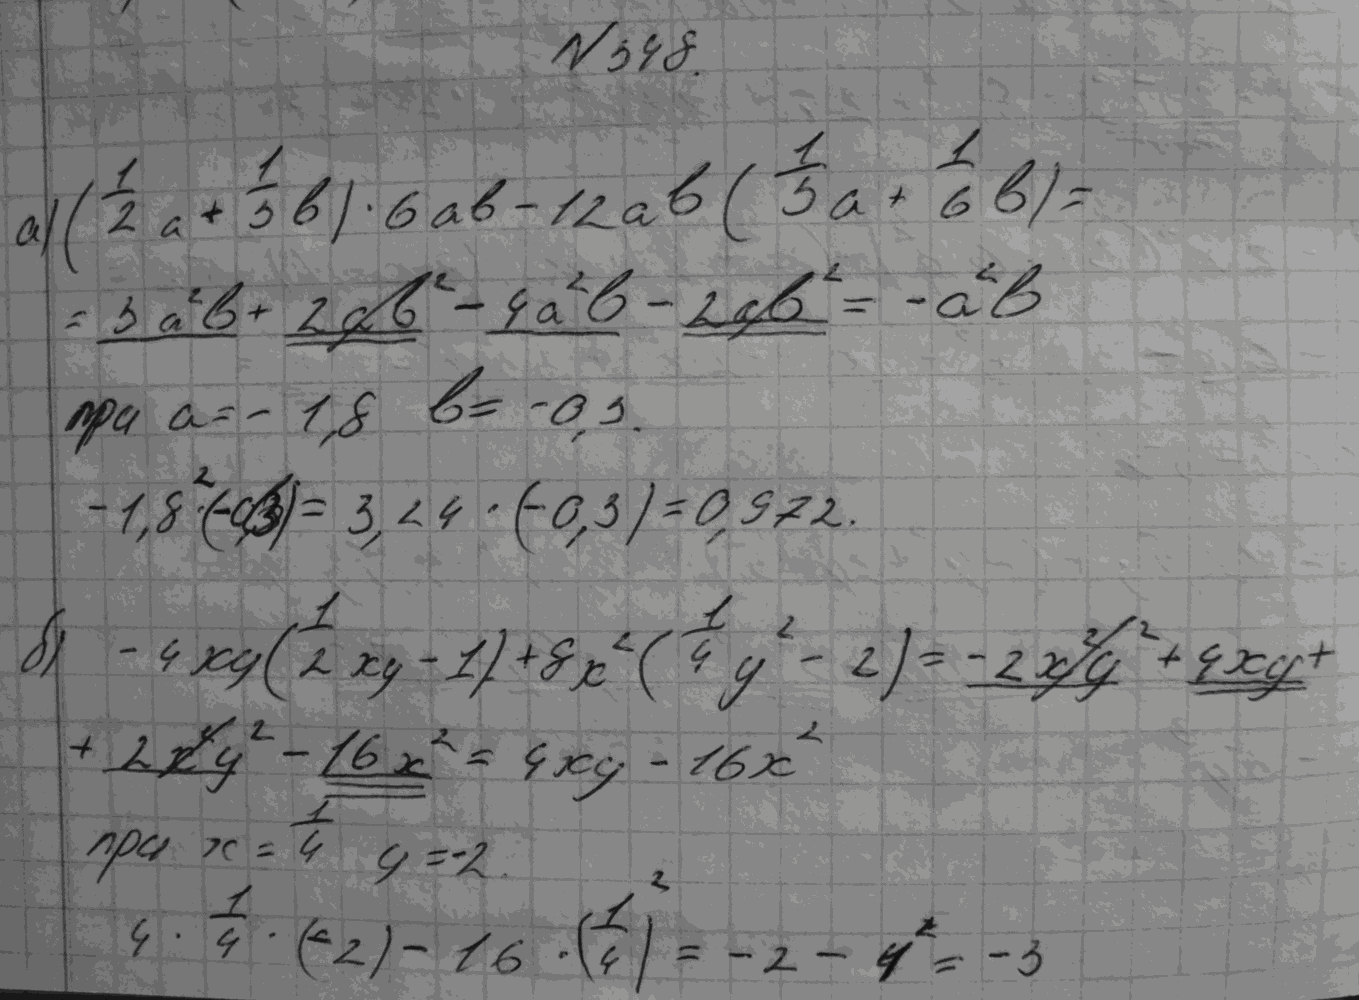 N 348.
а) (1/2 a + 1/3 b) · 6ab - 12ab (1/3 a + 1/6 b) =
= 3a²b + 2ab² - 4a²b - 2ab² = -a²b
при a = - 1,8 b = -0,3.
-1,8² · (-0,3) = 3,24 · (-0,3) = 0,972.
б) -4xy (1/2 xy - 1) + 8x² (1/4 y² - 2) = -2x²y² + 4xy +
+ 2x²y² - 16x² = 4xy - 16x²
при x = 1/4 y = -2.
4 · 1/4 · (-2) - 16 · (1/4)² = -2 - 1 = -3